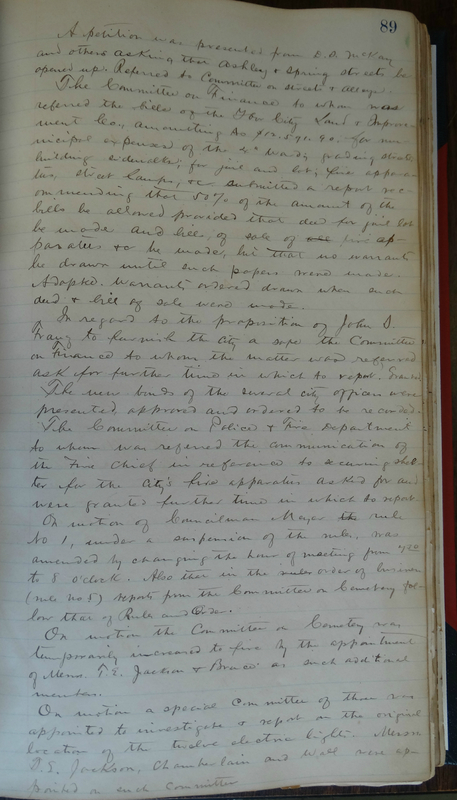 89
A petition was presented from D.D. McKay
and others asking that Ashley & Spring streets be
opened up. Referred to Committee on streets & alleys.
The Committee on Finance to whom was
referred the bills of the Ybor City Land & Improve-
ment Co., amounting to for mu-
nicipal expenses of the 4th Ward, grading streets
building sidewalks, for jail and lot, fire appara-
tus, street lamps, &c submitted a report rec-
ommending that 50% of the amount of the
bills be allowed provided that deed for jail lot
be made and bill, of sale of fire ap-
paratus &c be made, but that no warrants
be drawn until such papers were made.
Adopted. Warrants ordered drawn when such
deed & bill of sale were made.
In regard to the proposition of John S.
to furnish the city a safe the Committee
on Finance to whom the matter was referred
ask for further time in which to report. Granted
The new bonds of the several city officers were
presented approved and ordered to be recorded.
The Committee on Police & Fire Department
to whom was referred the communication of
the Fire Chief in reference to securing shel-
ter for the city's fire apparatus asked for and
were granted further time in which to report.
On motion of Councilman Mayer the rule
No 1, under a suspension of the rules, was
amended by changing the hour of meeting from 7:30
to 8 o'clock. Also that in the rules order of business
(rule no 5) reports from the Committee on Cemetery fol-
low that of Rules and Order.
On motion the Committee on Cemetery was
temporarily increased to five by the appointment
of Messrs. T.E. Jackson & as such additional
members.
On motion a special Committee of three was
appointed to investigate & report on the original
location of the twelve electric lights. Messrs
T.E. Jackson, Chamberlain and Wall were ap-
pointed on such Committee